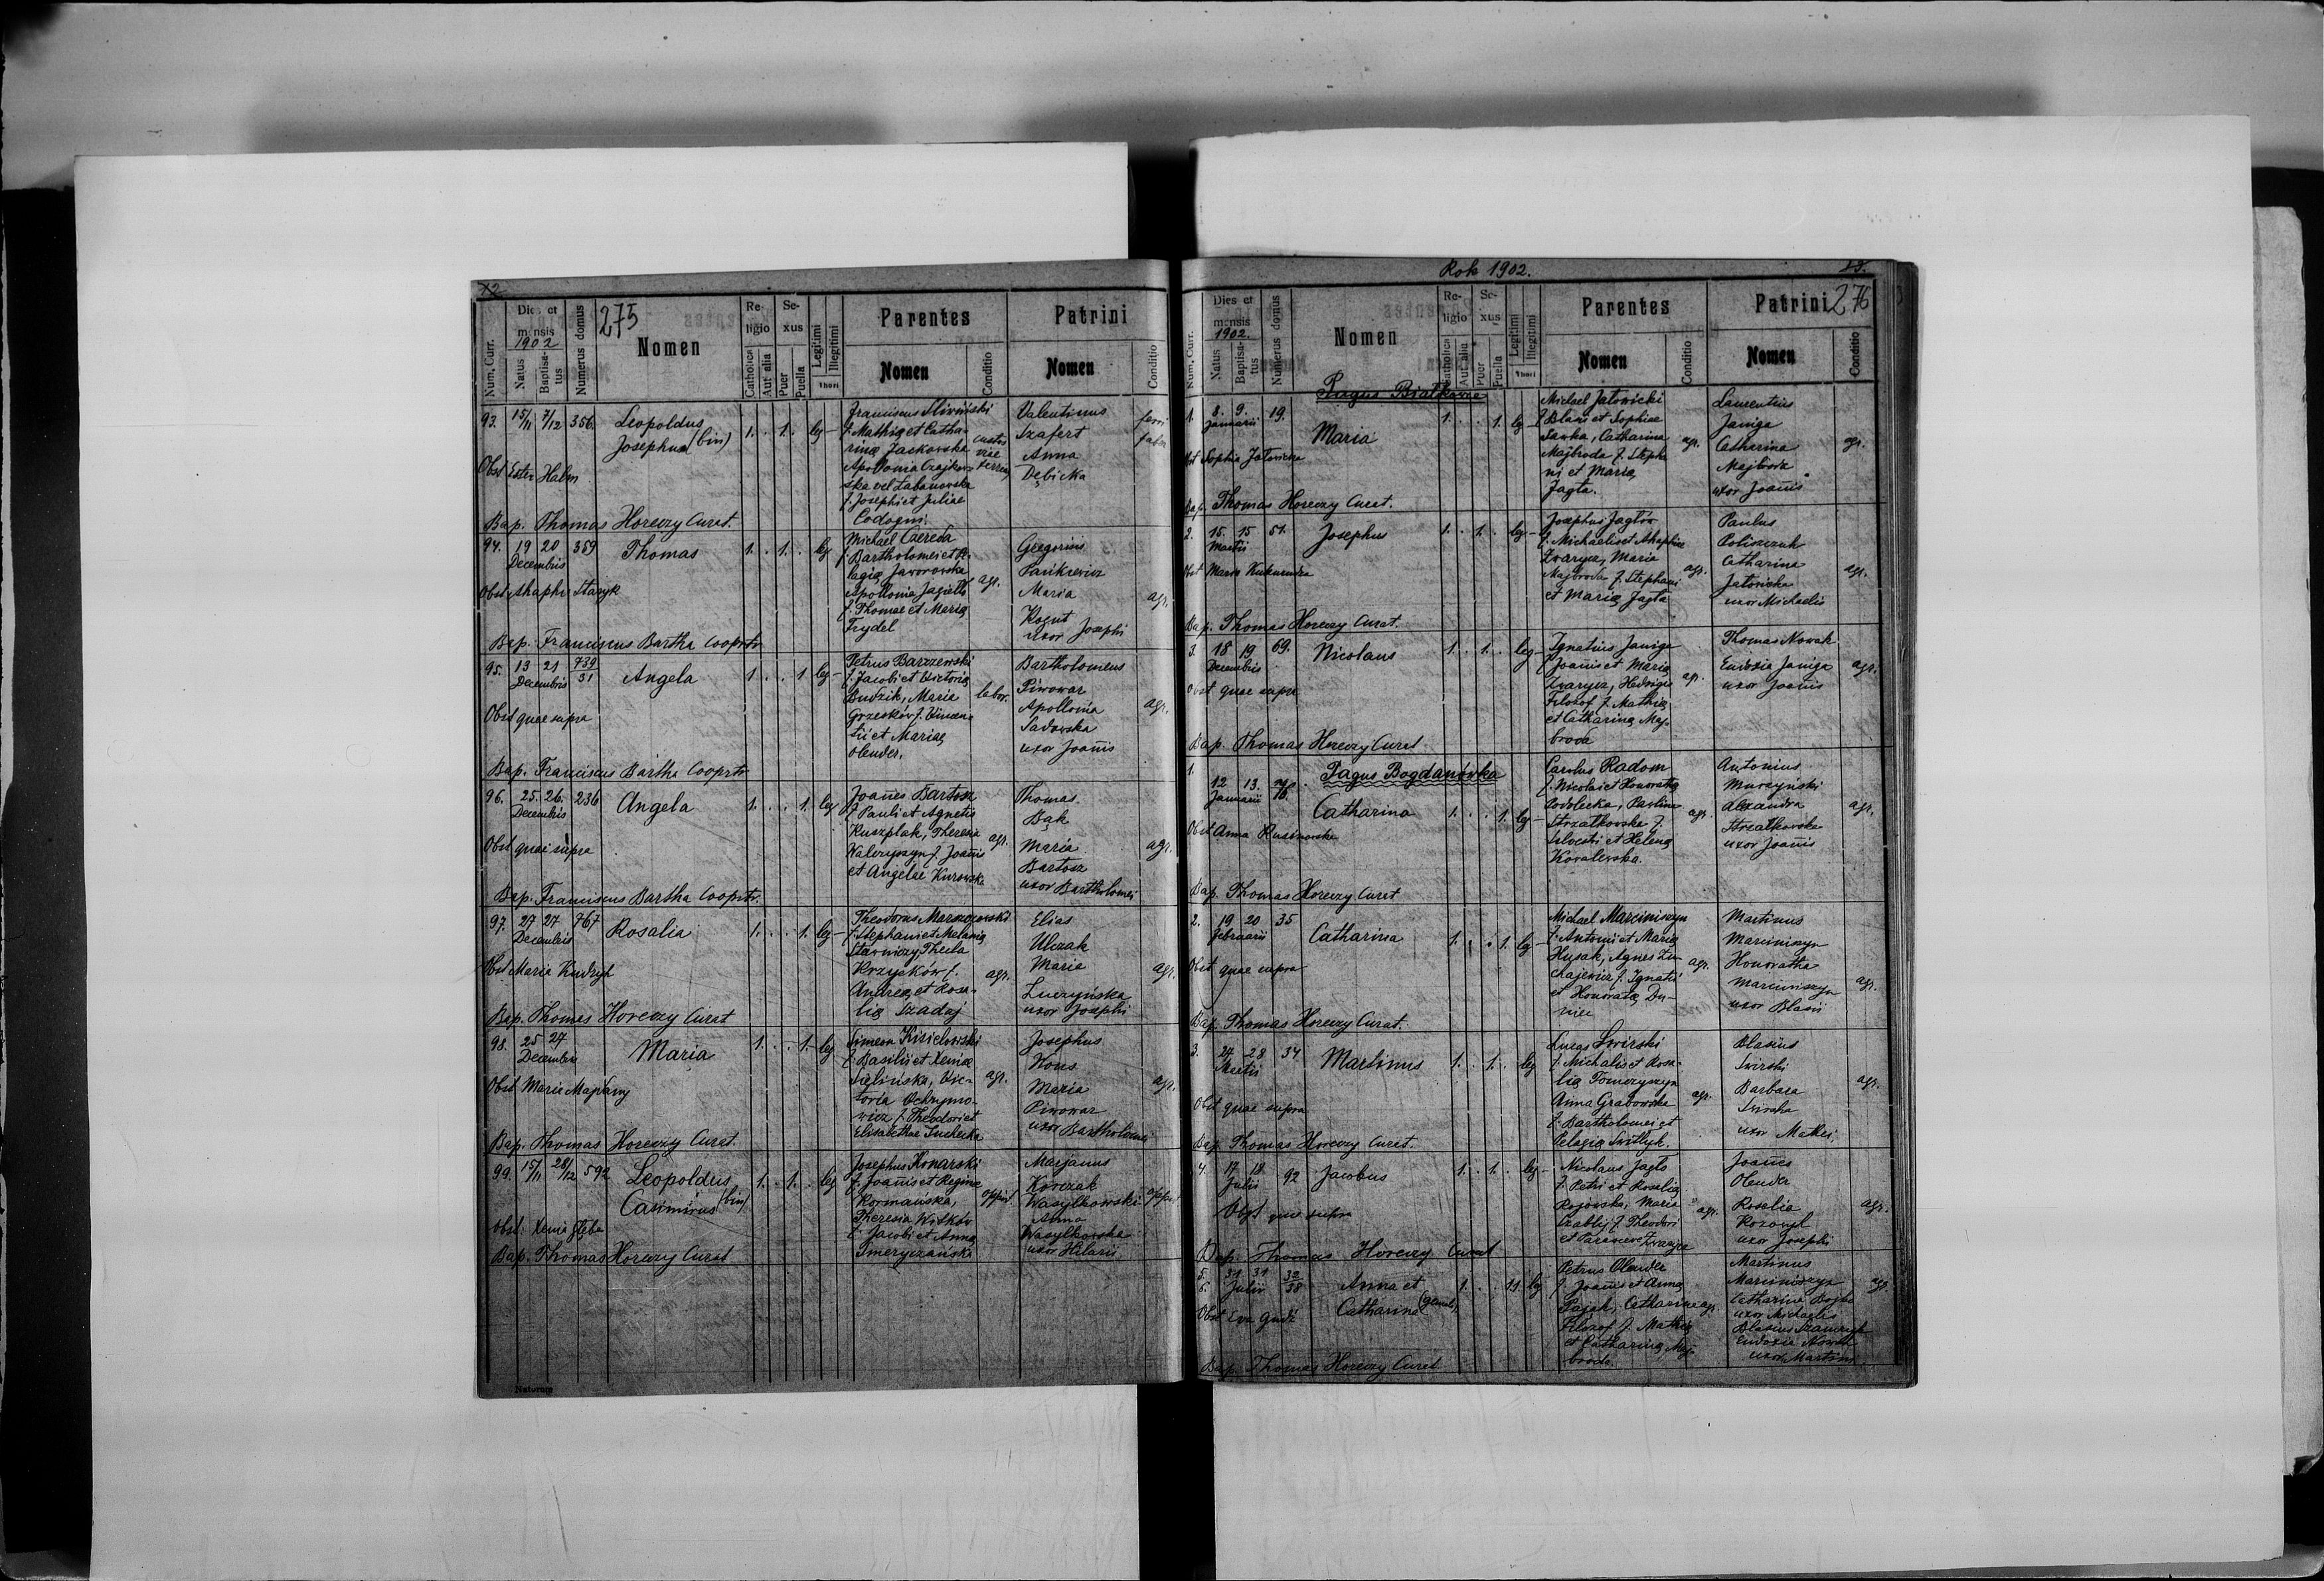 12
275
Dies et
mensis
1902
Num. Curr.
Natus
Baptisa-
tus
Numerus domus
Nomen
Re-
ligio
Catholica
Aut alia
Se-
xus
Puer
Puella
Legitimi
Illegitimi
Thori
Parentes
Nomen
Conditio
Patrini
Nomen
Conditio
93. 15/11 7/12 356.
Leopoldus
Josephus (bin)
1. . 1. . leg -
Franciscus Sliwiński
f. Mathiæ et Catha-
rinæ Jaskowska
Apolonia Czajkow-
ska vel Labanowska
f. Josephi et Juliæ
Codogni.
custos
viae
ferreae
Valentinus
Szafert
Anna
Dębicka
ferri
faber
Obst Ester Halm
Bap. Thomas Horeczy Curat.
94. 19 20 359
Decembris
Thomas
1. . 1. . leg
Michael Czereda
f. Bartholomei et Pe-
lagiæ Jaworowska
Apollonia Jagiełło
f. Thomae et Mariæ
Frydel
agr.
Gregorius
Pankiewicz
Maria
Kogut
uxor Josephi
agr.
Obst Ahaphi Staryk
Bap. Franciscus Bartha Cooprtr
95. 13 21 739
31
Decembris
Angela
1 . . 1 leg -
Petrus Barczewski
f. Jacobi et Victoriæ
Budzik, Maria
Grzeskow f. Vincen-
tii et Mariæ
Olender.
labor.
Bartholomeus
Piwowar
Apollonia
Sadowska
uxor Joannis
agr.
Obst quae supra
Bap. Franciscus Bartha Cooprtr
96. 25. 26. 236
Decembris
Angela
1. . . 1. leg
Joannes Bartosz
f. Pauli et Agnetis
Kuszplak, Theresia
Waleryszyn f. Joannis
et Angelae Kurowska
agr.
Thomas
Bąk
Maria
Bartosz
uxor Bartholomei
agr.
Obst quae supra
Bap. Franciscus Bartha Cooprtr.
97. 27 27 767
Decembris
Rosalia
1. . . 1. leg -
Theodorus Marszczowski
f. Stephani et Melaniæ
Stawniczy Thecla
Krzyskow f.
Andreæ et Rosa-
liæ Szadaj
agr.
Elias
Ulczak
Maria
Luczyńska
uxor Josephi
agr.
Obst Maria Kindzyl
Bap. Thomas Horeczy Curat
98. 25 27
Decembris
Maria
1. . . 1. leg
Simeon Kisielowski
f. Basilii et Xeniæ
Sielińska, Vic-
toria Ochrymo-
wicz, f. Theodori et
Elisabethae Suchecka
agr.
Josephus
Wons
Maria
Piwowar
uxor Bartholomei
agr.
Obst Maria Majdany
Bap. Thomas Horeczy Curat.
99. 15/11 28/12 592
Leopoldus
Casimirus (bin)
1. . 1. . leg
Josephus Konarski
f. Joannis et Reginæ
Romańska,
Theresia Witków
f. Jacobi et Annæ
Smeryczańska
oppid.
Marjanus
Korczak
Wasylkowski
Anna
Wasylkowska
uxor Hilarii
oppid
Obst. Xenia Gleba
Bap. Thomas Horeczy Curat
Natorum
Rok 1902.
276
Num. Curr.
Dies et
mensis
1902.
Natus
Baptisa-
tus
Numerus domus
Nomen
Re-
ligio
Catholica
Aut alia
Se-
xus
Puer
Puella
Legitimi
Illegitimi
Thori
Parentes
Nomen
Conditio
Patrini
Nomen
Conditio
Pagus Białkowce
1. 8. 9. 19.
Januarii
Maria
1. . . 1. leg -
Michael Jatowicki
f. Blasii et Sophiae
Sawka, Catharina
Majbroda f. Stepha-
ni et Mariæ
Jagta.
agr.
Laurentius
Janiga
Catharina
Majbroda
uxor Joannis
agr.
Obst Sophia Jatowicka
Bap. Thomas Horeczy Curat.
2. 15. 15 51.
Martii
Josephus
1. . 1. . leg -
Josephus Jagtów
f. Michaelis et Ahaphiae
Zwarycz, Maria
Majbroda f. Stephani
et Mariæ Jagta
agr.
Paulus
Poliszczuk
Catharina
Jatowicka
uxor Michaelis
agr.
Obst Maria Kukurudza
Bap. Thomas Horeczy Curat.
3. 18 19 69.
Decembris
Nicolaus
1. . 1. . leg -
Ignatius Janiga
f. Joannis et Mariæ
Zwarycz, Hedvigis
Filozof f. Mathiæ
et Catharinæ Maj-
broda
agr.
Thomas Nowak
Eudoxia Janiga
uxor Joannis
agr.
Obst quae supra
Bap. Thomas Horeczy Curat
Pagus Bogdanówka
1.
12 13.
Januarii
Catharina
1. . . 1. leg -
Carolus Radom
f. Nicolai et Honoratæ
Podolecka, Paulina
Strzałkowska f.
Silvestri et Helenæ
Kowalewska.
agr.
Antonius
Murzyński
Alexandra
Strzałkowska
uxor Joannis
agr.
Obst Anna Rusinowska
Bap. Thomas Horeczy Curat
2. 19 20 35
Februarii
Catharina
1. . . 1. leg -
Michael Marciniszyn
f. Antonii et Mariæ
Husak, Agnes Zu-
chajewicz f. Ignatii
et Honoratæ Du-
niec
agr.
Martinus
Marciniszyn
Honoratha
Marciniszyn
uxor Blasii
agr.
Obst quae supra
Bap. Thomas Horeczy Curat.
3. 27 28 34
Martii
Martinus
1. . 1. . leg
Lucas Swirski
f. Michalis et Rosa-
liæ Tomczyszyn
Anna Grabowska
f. Bartholomei et
Pelagiæ Switlyk.
agr.
Blasius
Swirski
Barbara
Swirska
uxor Mathei
agr.
Obst quae supra
Bap. Thomas Horeczy Curat.
4. 17 18 92
Julii
Jacobus
1. . 1. . leg -
Nicolaus Jagto
f. Petri et Rosaliæ
Rojowska, Maria
Szablij f. Theodori
et Parascevæ Zwarycz
agr.
Joannes
Olender
Rosalia
Kozanyl
uxor Josephi
agr.
Obst quae supra
Bap. Thomas Horeczy Curat
5. 31 31 32
6. Julii 38
Anna et
Catharina (gemel.)
1. . . 11 leg
Petrus Olender
f. Joannis et Annæ
Pająk, Catharina
Filozof f. Mathiæ
et Catharinæ Maj-
broda.
agr.
Martinus
Marciniszyn
Catharina Bojko
uxor Michaelis
Blasius Szewczyk
Eudoxia Nowak
uxor Martini
agr
Obst Eva Gudz
Bap. Thomas Horeczy Curat